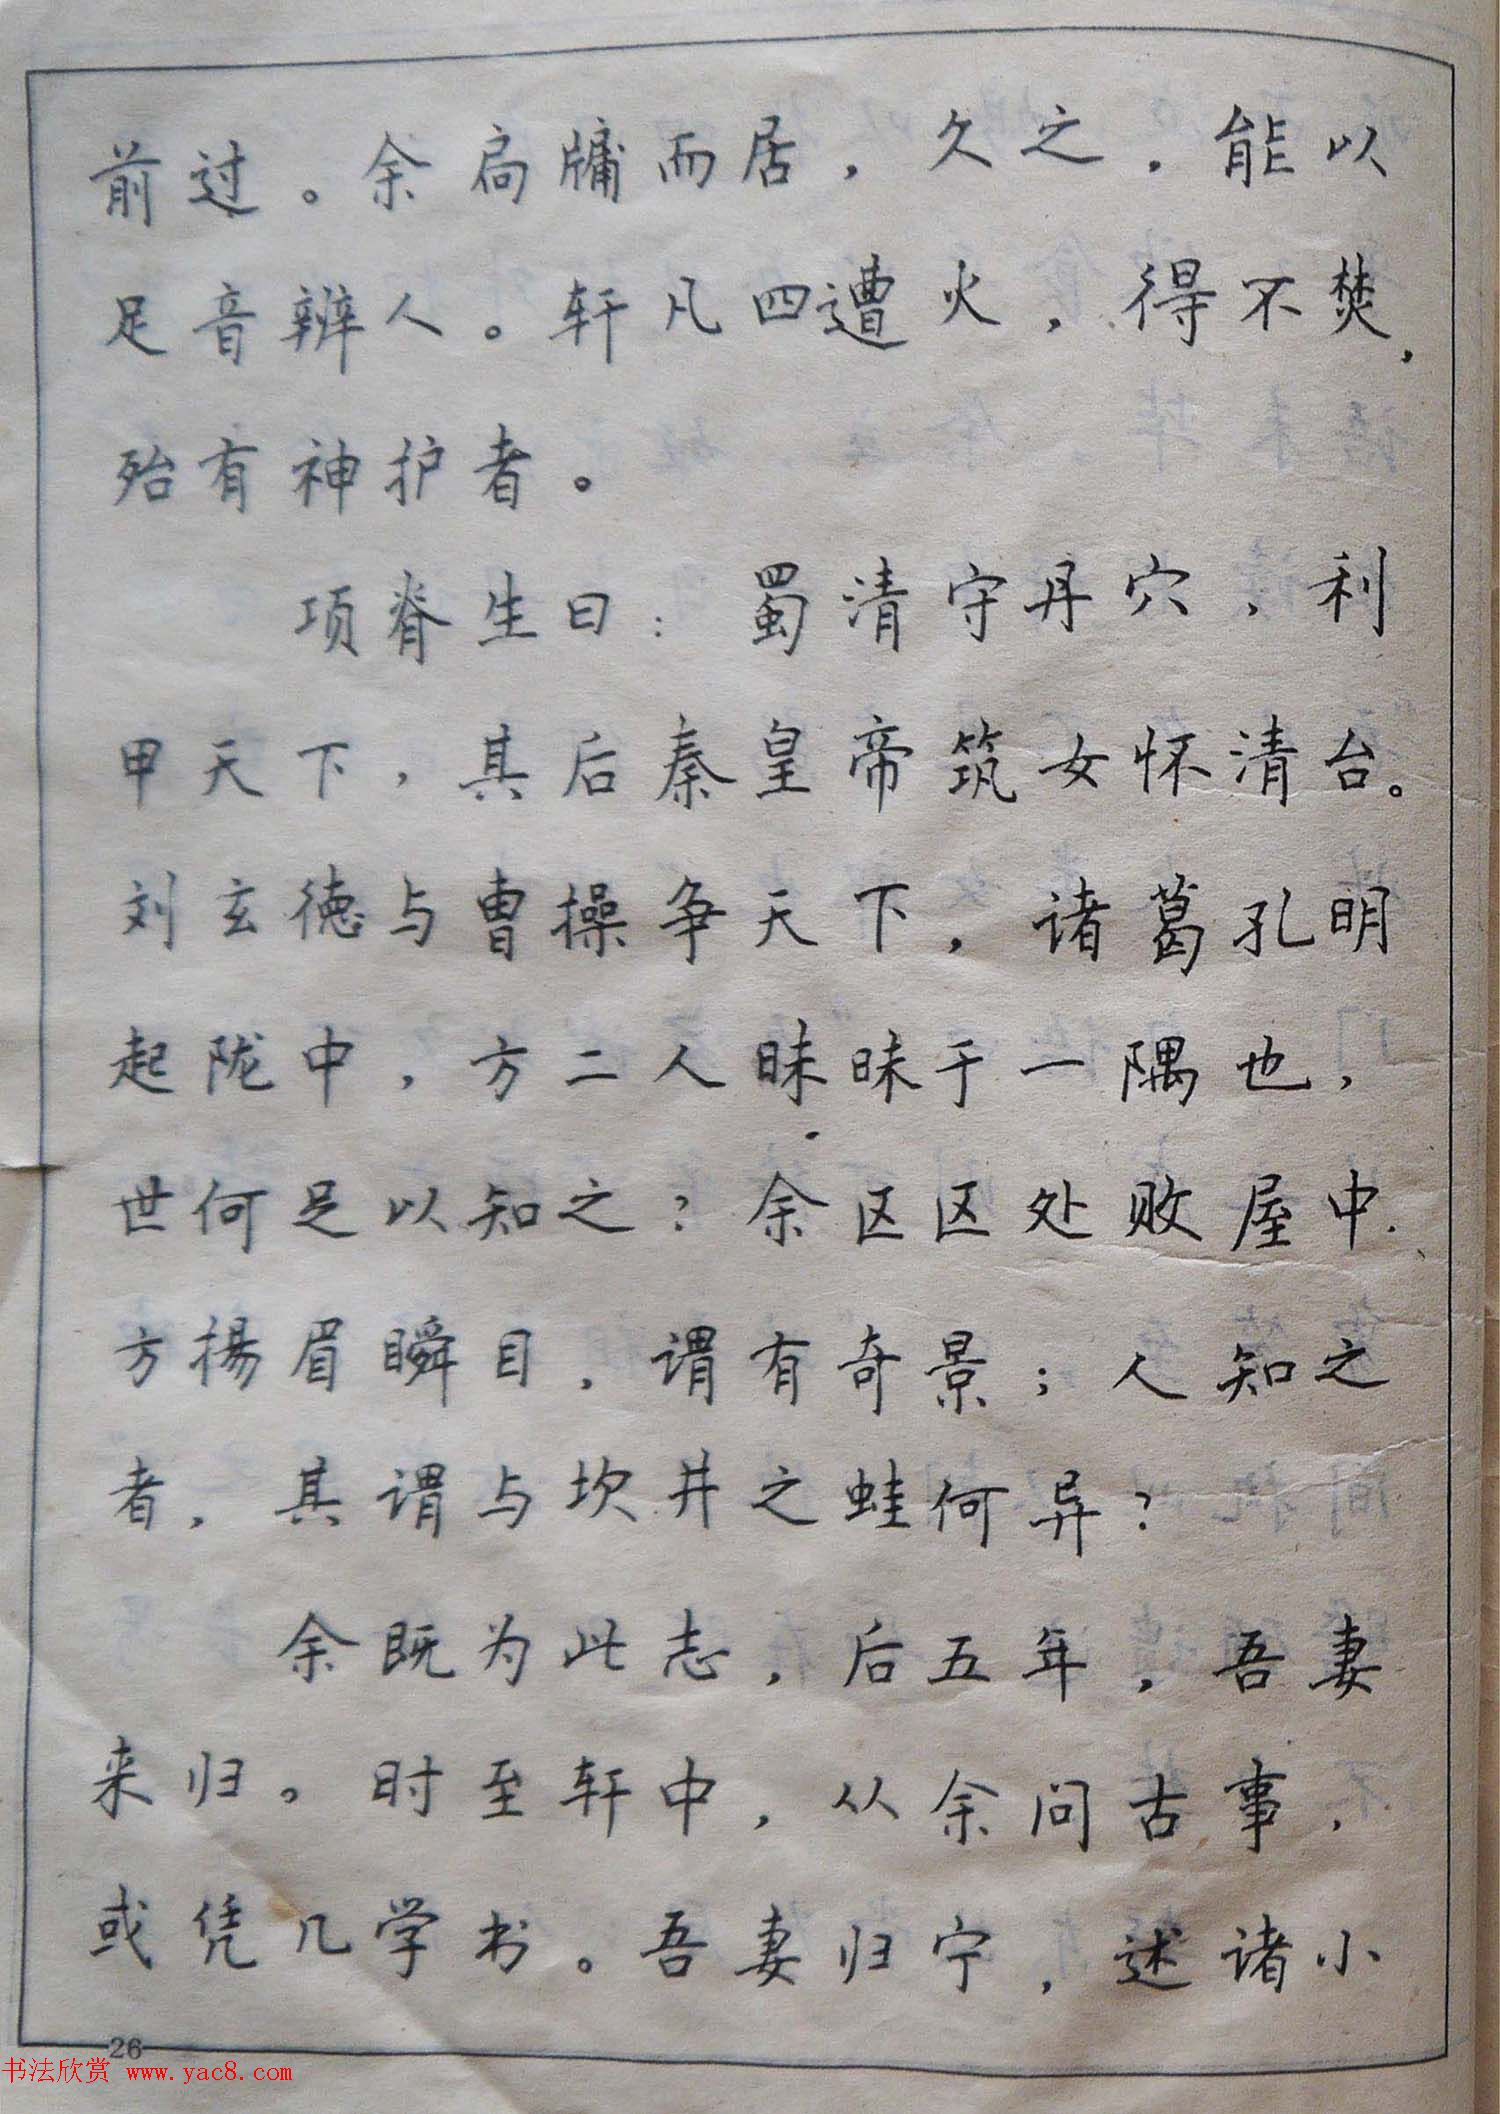 前过。余扃牖而居，久之，能以
足音辨人。轩凡四遭火，得不焚，
殆有神护者。
项脊生曰：蜀清守丹穴，利
甲天下，其后秦皇帝筑女怀清台。
刘玄德与曹操争天下，诸葛孔明
起陇中，方二人昧昧于一隅也，
世何足以知之？余区区处败屋中，
方扬眉瞬目，谓有奇景；人知之
者，其谓与坎井之蛙何异？
余既为此志，后五年，吾妻
来归。时至轩中，从余问古事，
或凭几学书。吾妻归宁，述诸小
26
书法欣赏 www.yac8.com